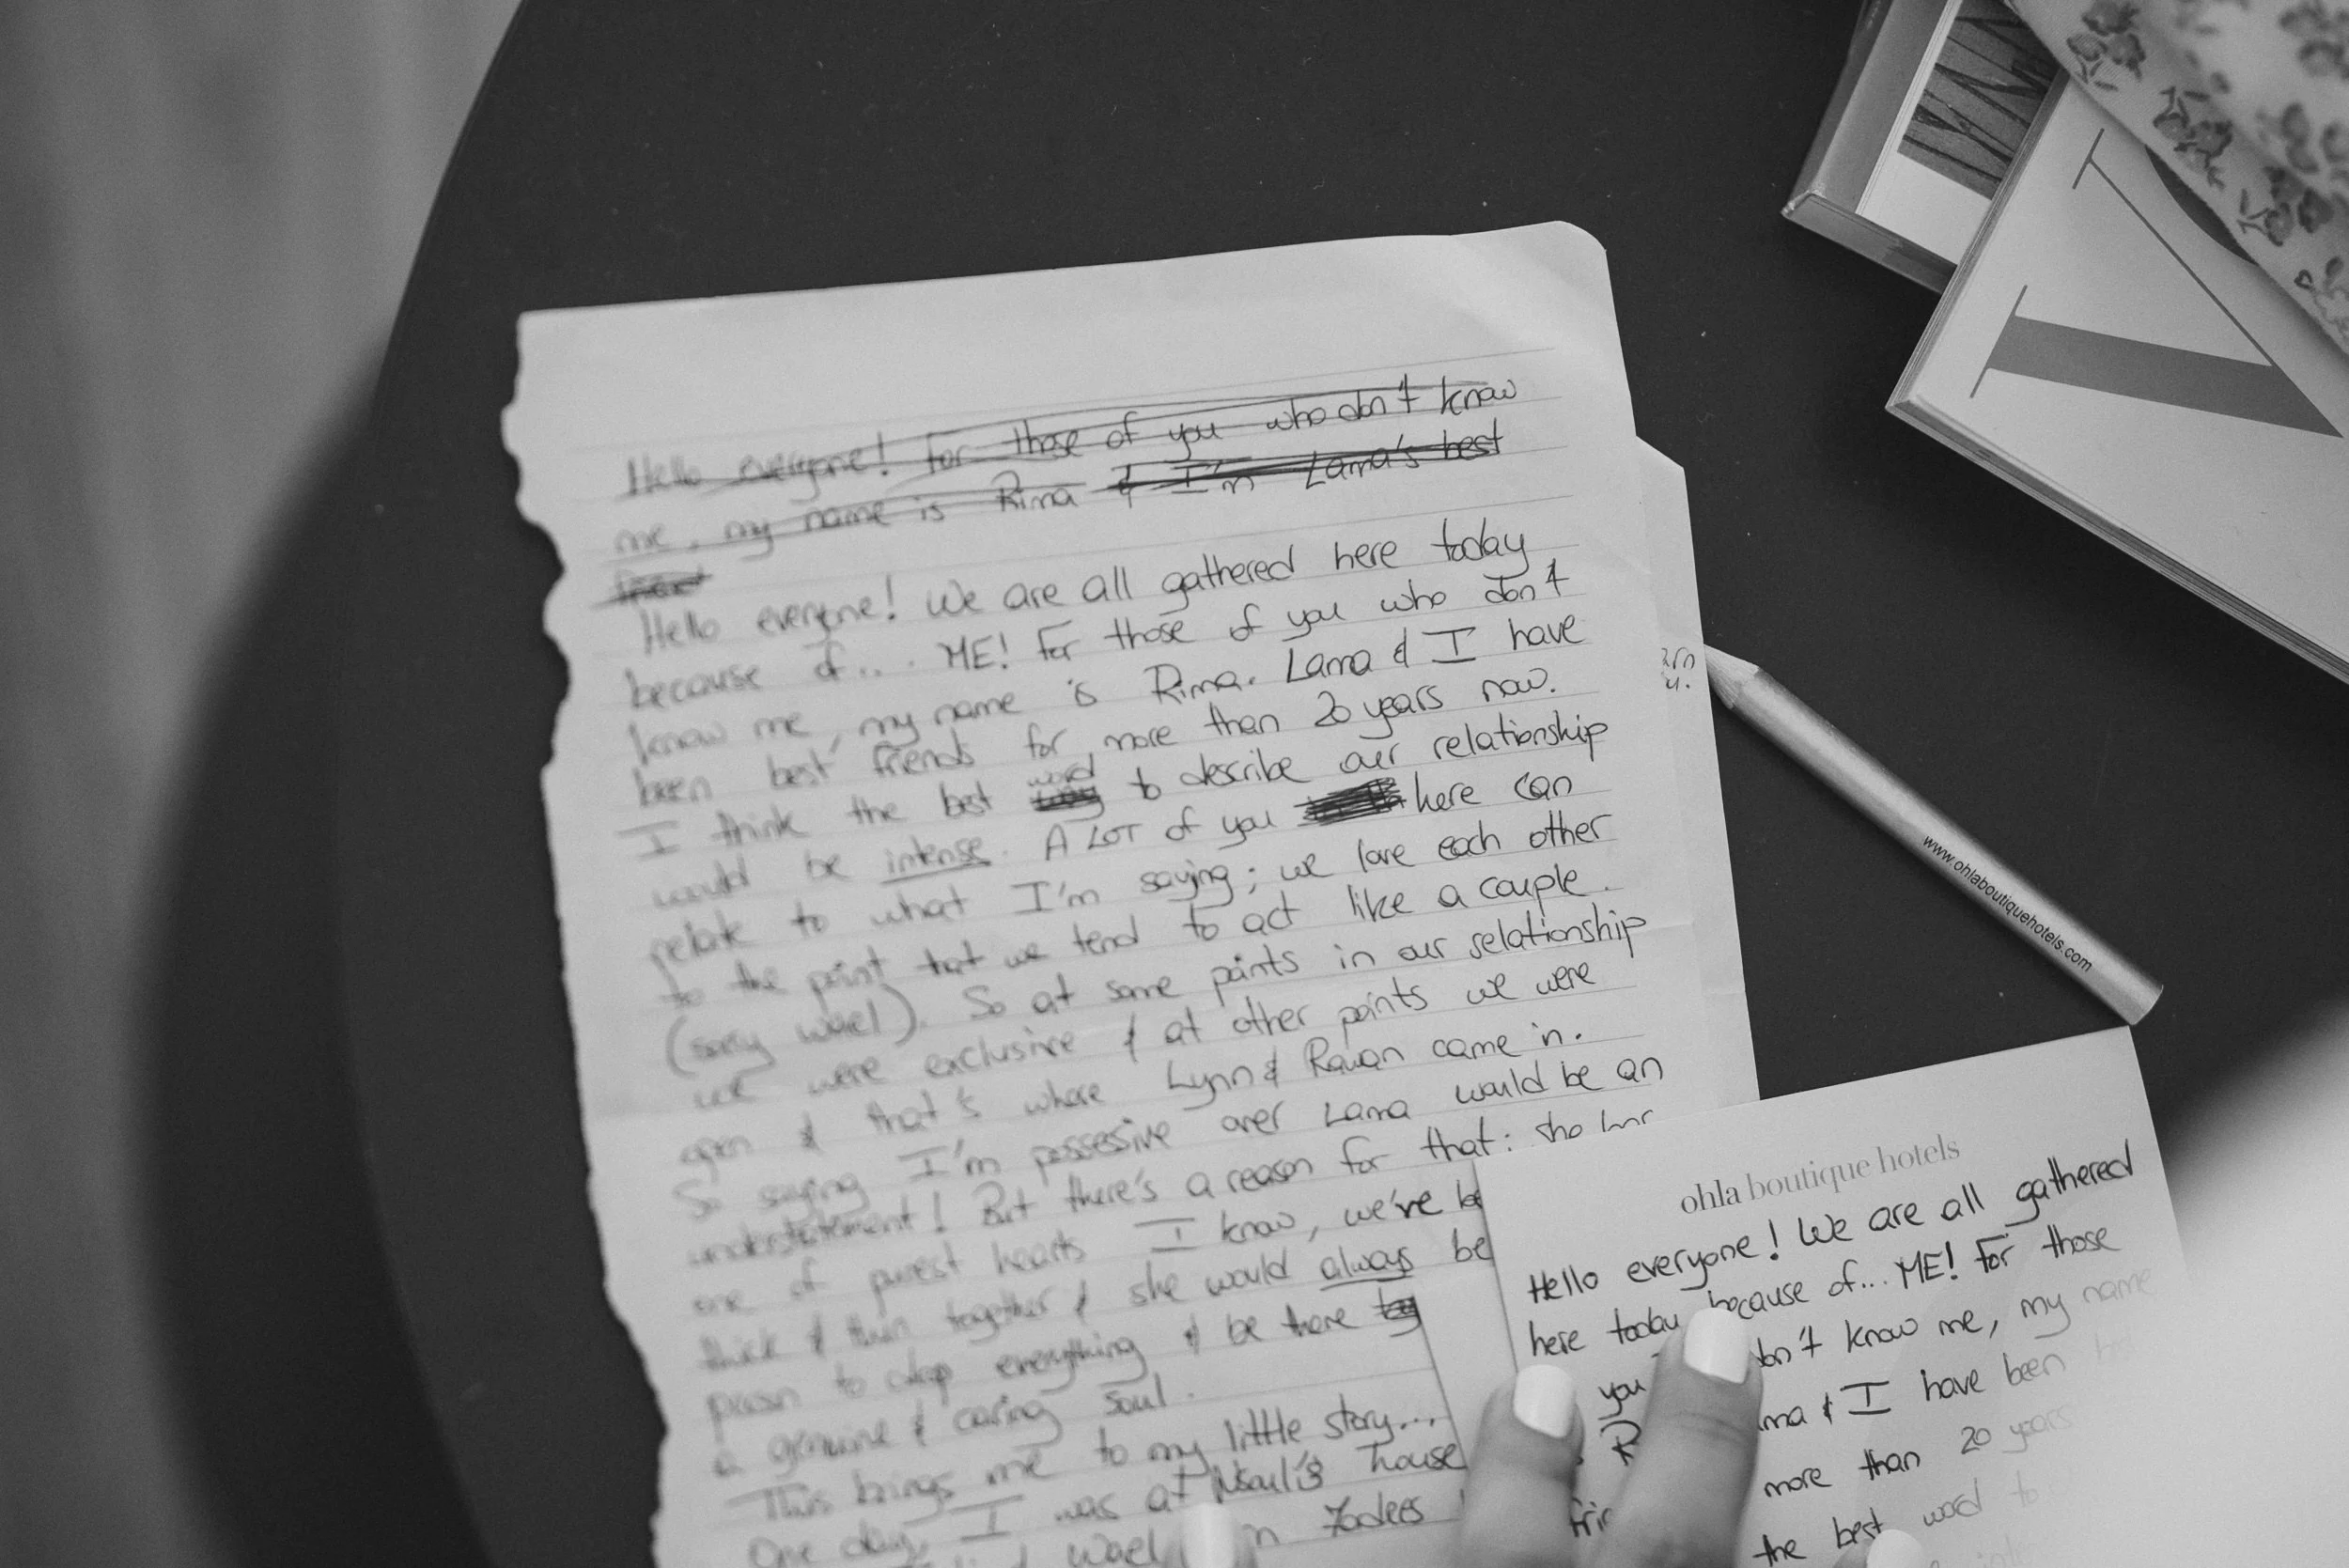 Hello everyone! For those of you who don't know
me, my name is Rima & I'm Lama's best
friend
Hello everyone! We are all gathered here today
because of... ME! For those of you who don't
know me, my name is Rima. Lama & I have
been best friends for more than 20 years now.
I think the best word to describe our relationship
would be intense. A LOT of you here can
relate to what I'm saying; we love each other
to the point that we tend to act like a couple.
(sorry Wael). So at some points in our relationship
we were exclusive & at other points we were
open & that's where Lynn & Rawan came in.
So saying I'm possessive over Lama would be an
understatement! But there's a reason for that: she has
one of purest hearts I know, we've be
thick & thin together & she would always be
person to drop everything & be there
a genuine & caring soul.
This brings me to my little story...
One day, I was at house
Wael
www.ohlaboutiquehotels.com
ohla boutique hotels
Hello everyone! We are all gathered
here today because of... ME! For those
you don't know me, my name
R ma & I have been
more than 20 years
fri the best word to